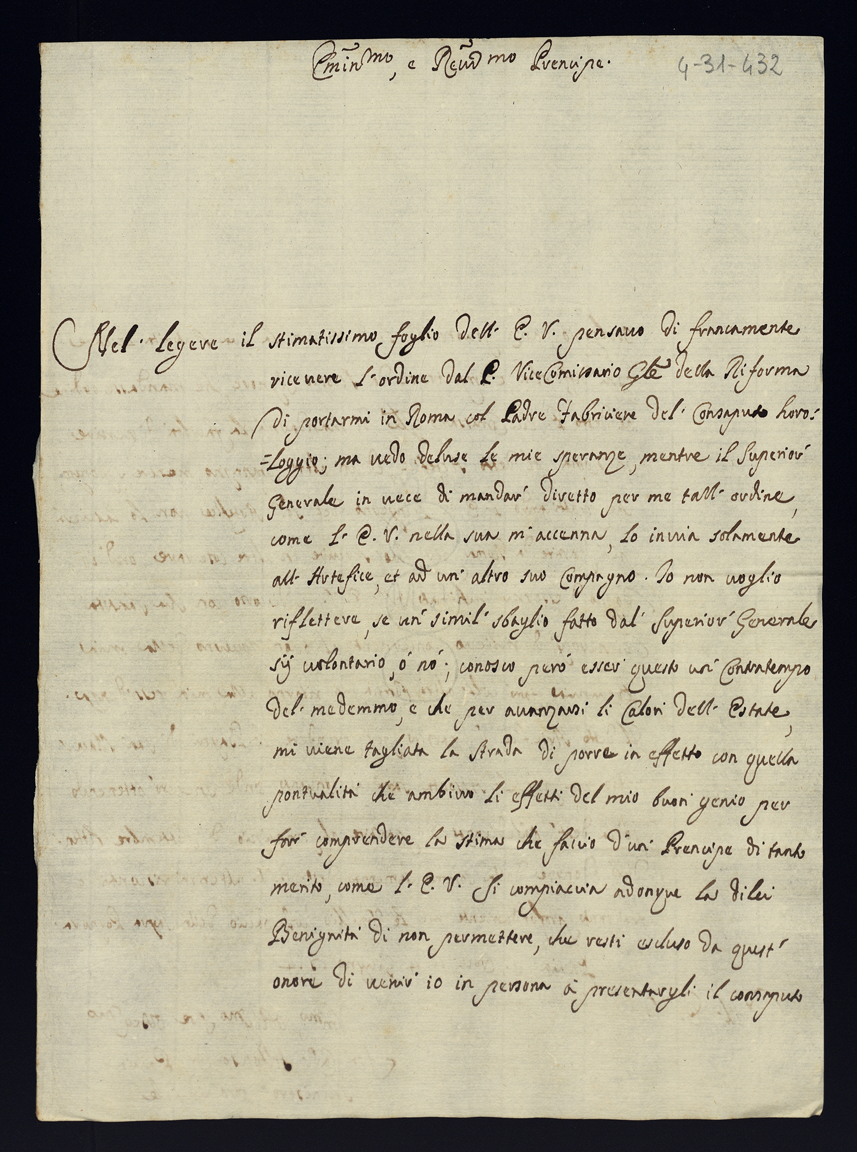 Eminmo, e Reudmo Prencipe. 4-31-432
Nel' legere il stimatissimo foglio dell' E. V. pensauo di francamente
riceuere l'ordine dal P. ViceComissario Gle della Riforma
di portarmi in Roma col Padre Fabriciere del' Consaputo horo:
=loggio; ma uedo deluse le mie speranze, mentre il Superior'
Generale in uece di mandar' diretto per me tall' ordine,
come l' E. V. nella sua m'accenna, lo inuia solamente
all' Artefice, et ad un' altro suo Compagno. Io non uoglio
riflettere, se un' simil' sbaglio fatto dal' Superior' Generale
sij uolontario, ò nò; conosco però esser' questo un' Contratempo
del' medemmo, e che per auanzarsi li Calori dell' Estate,
mi uiene tagliata la strada di porre in effetto con quella
pontualità che ambiuo li effetti del mio buon genio per
farr' comprendere la stima che faccio d'un' Prencipe di tanto
merito, come l' E. V. Si compiaccia adonque la dilei
Benignità di non permettere, che resti escluso da quest'
onore di uenir' io in persona à presentargli il consaputo